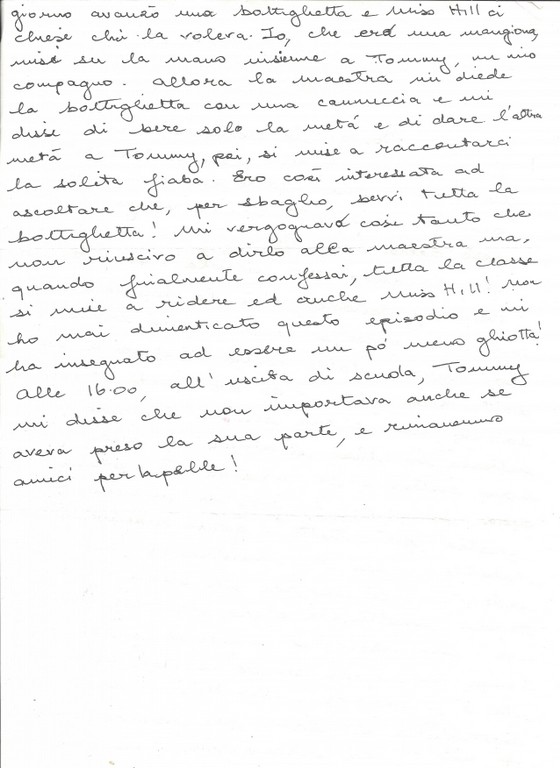 giorno avanzò una bottiglietta e Miss Hill ci
chiese chi la voleva. Io, che ero una mangiona,
misi su la mano insieme a Tommy, un mio
compagno. Allora la maestra mi diede
la bottiglietta con una cannuccia e mi
disse di bere solo la metá e di dare l'altra
metá a Tommy, poi, si mise a raccontarci
la solita fiaba. Ero così interessata ad
ascoltare che, per sbaglio, bevvi tutta la
bottiglietta! Mi vergognavo così tanto che
non riuscivo a dirlo alla maestra ma,
quando finalmente confessai, tutta la classe
si mise a ridere ed anche Miss Hill! Non
ho mai dimenticato questo episodio e mi
ha insegnato ad essere un pó meno ghiotta!
Alle 16.00, all'uscita di scuola, Tommy
mi disse che non importava anche se
aveva preso la sua parte, e rimanemmo
amici per la pelle!